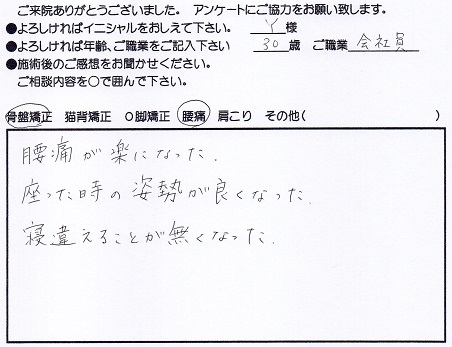 ご来院ありがとうございました。 アンケートにご協力をお願い致します。
●よろしければイニシャルをおしえて下さい。 Y 様
●よろしければ年齢、ご職業をご記入下さい 30 歳 ご職業 会社員
●施術後のご感想をお聞かせください。
ご相談内容を○で囲んで下さい。
骨盤矯正 猫背矯正 O脚矯正 腰痛 肩こり その他( )
腰痛が楽になった.
座った時の姿勢が良くなった.
寝違えることが無くなった.